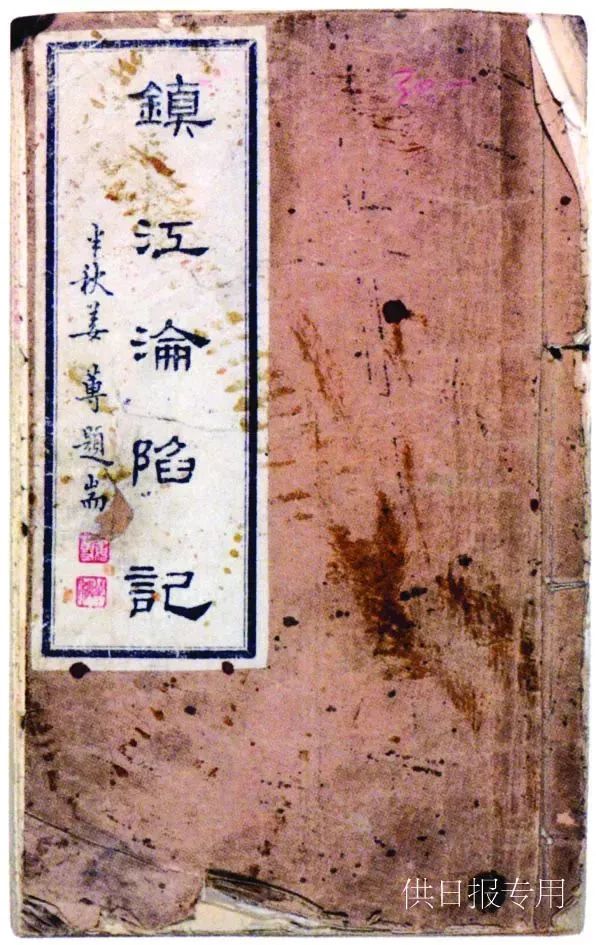 鎮江淪陷記
半秋姜蓴題耑
供日报专用